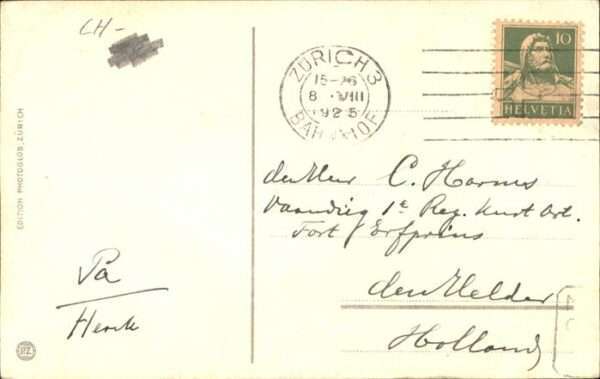 CH-
ZÜRICH 3
15-16
8. VIII
1925
BAHNHOF
10
HELVETIA
EDITION PHOTOGLOB, ZÜRICH
den Heer C. Harms
Vaandrig 1e Reg. Kust Art.
Fort Erfprins
den Helder
Holland
Pa
Henk
PZ